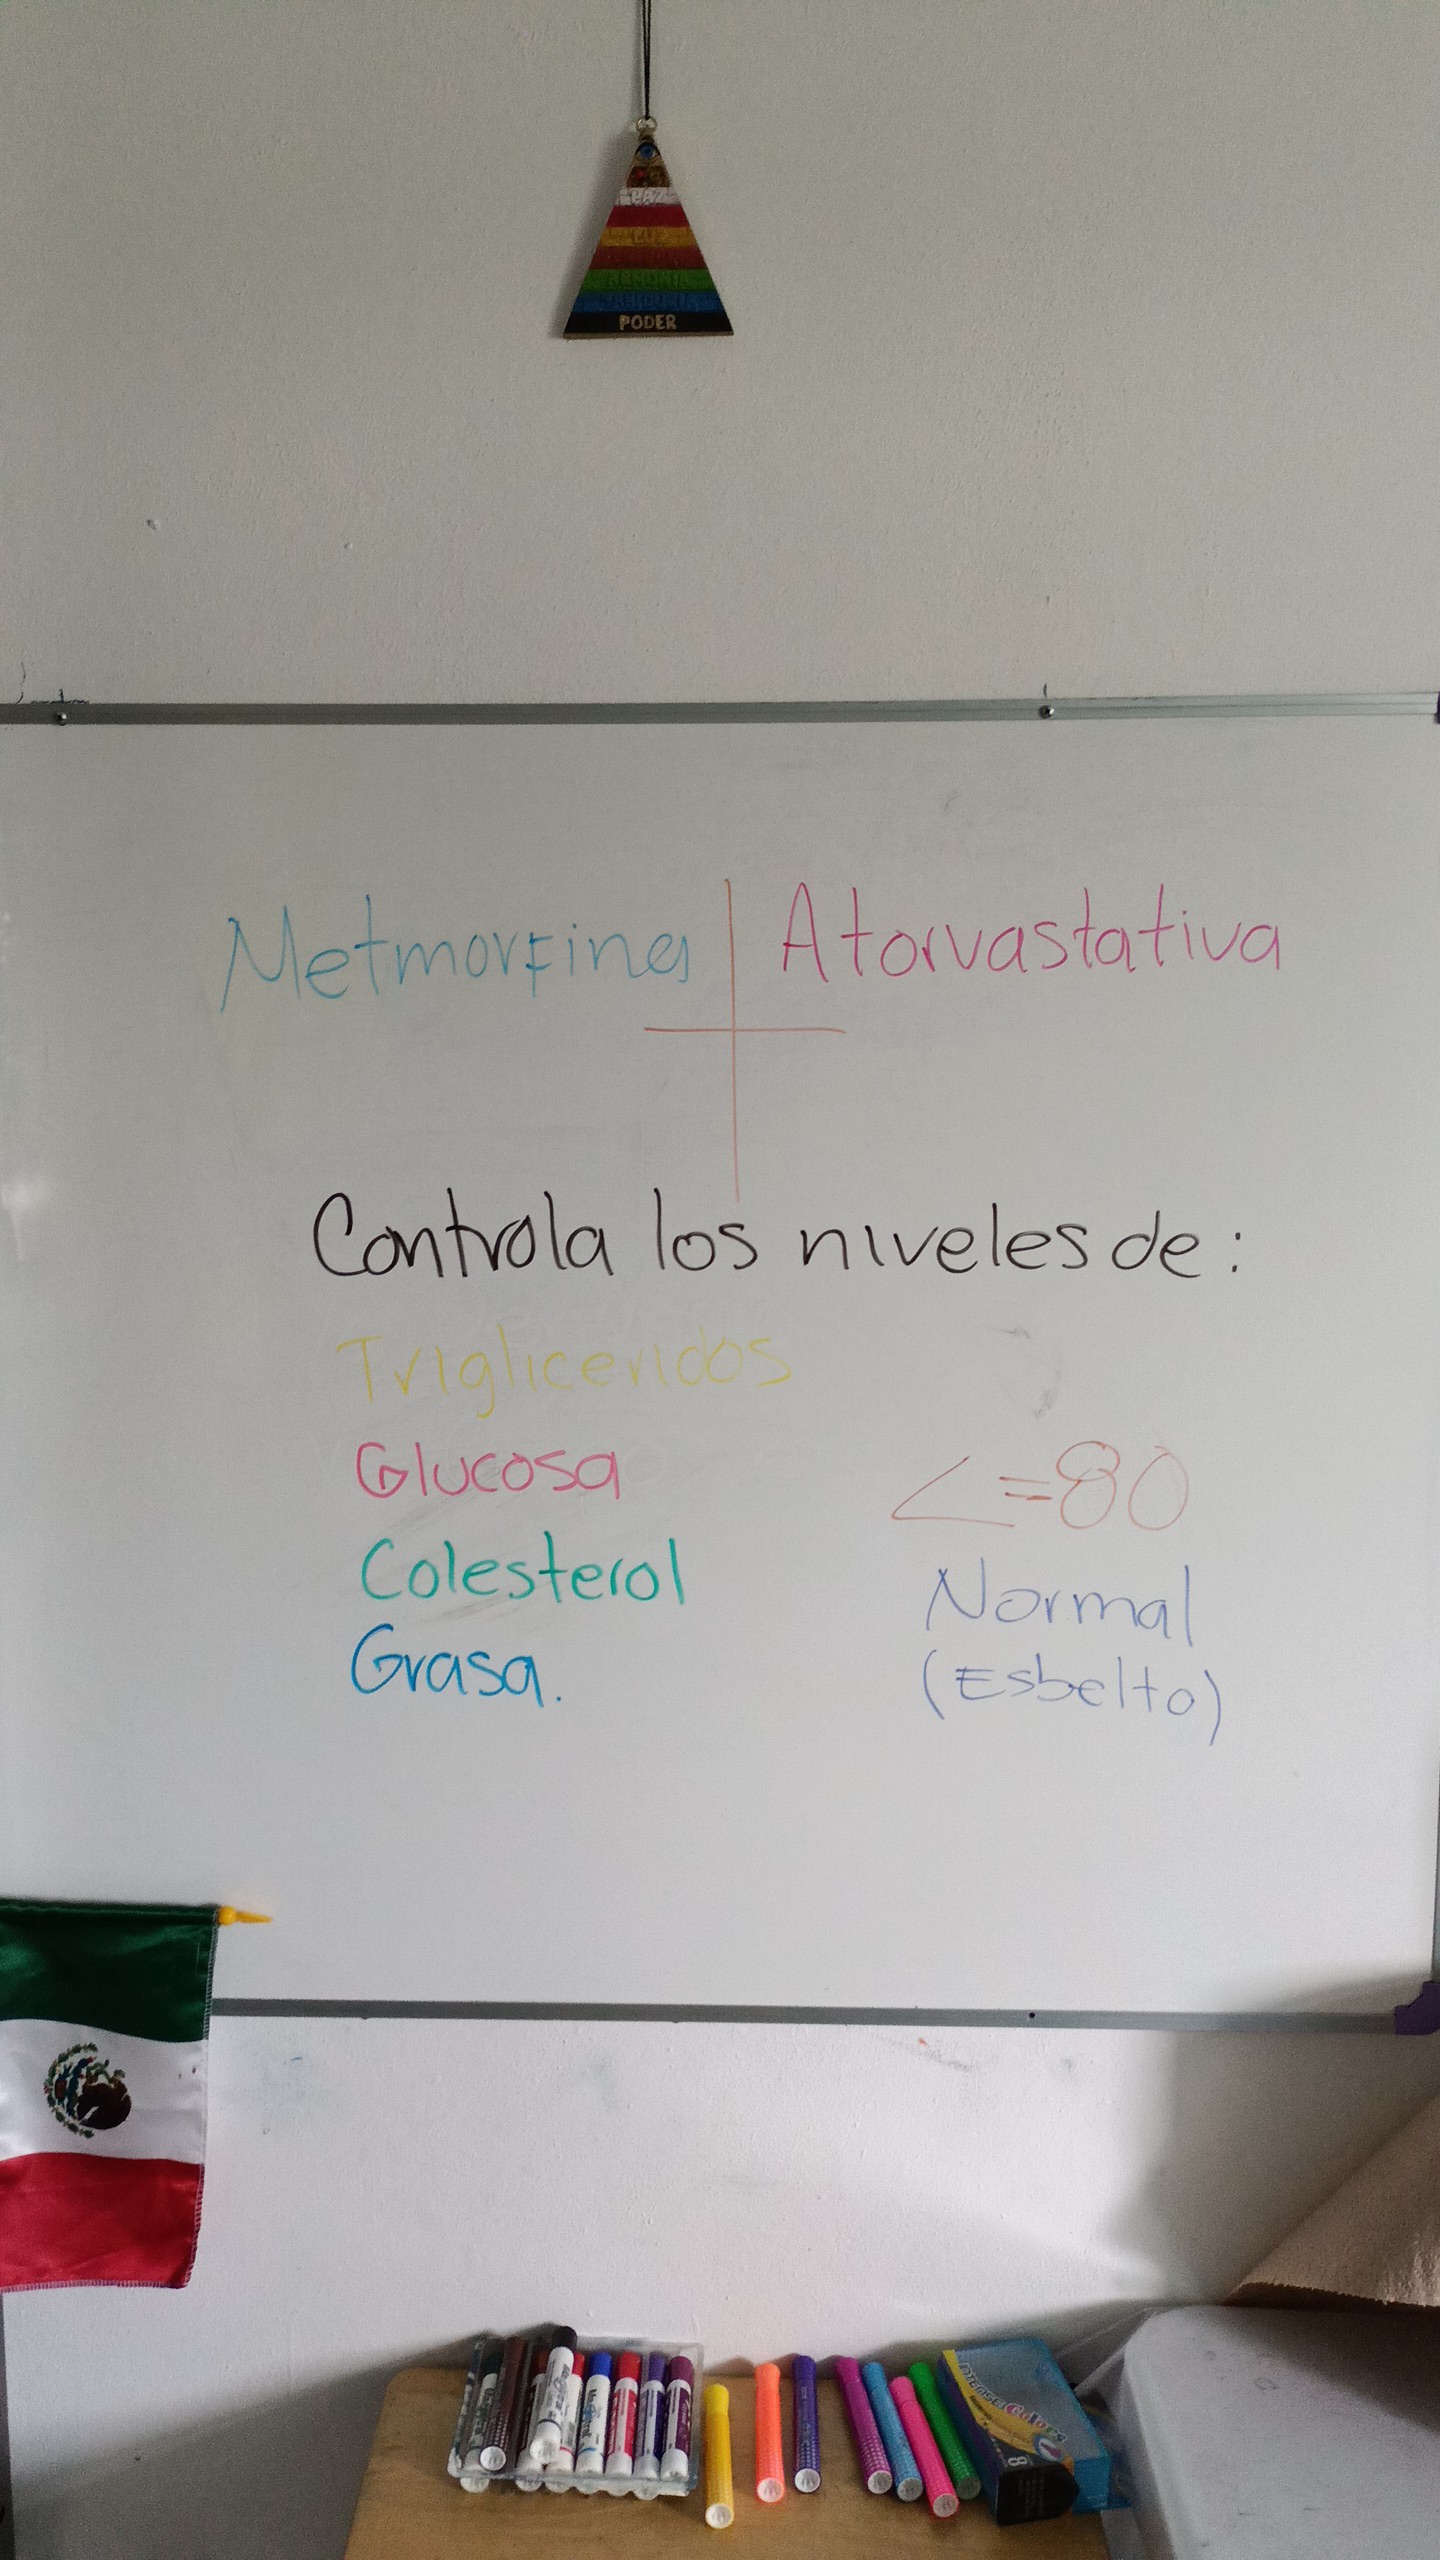 PAZ
LUZ
PODER
Metmorfina Atorvastativa
Controla los niveles de:
Trigliceridos
Glucosa
<=80
Colesterol
Normal
Grasa.
(Esbelto)